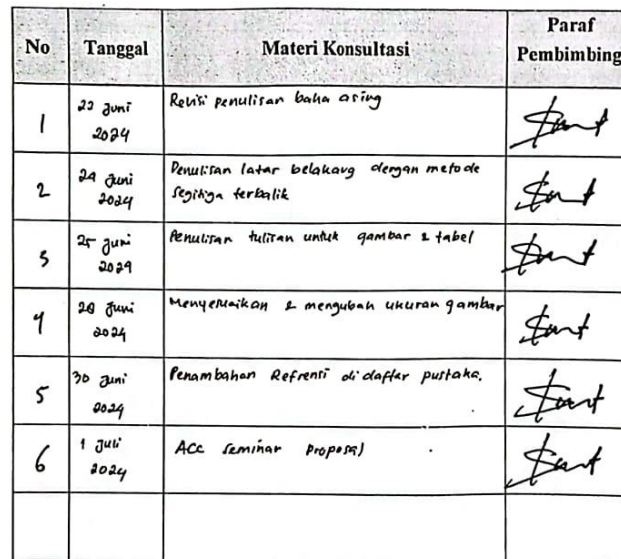 No Tanggal Materi Konsultasi Paraf Pembimbing
1 22 Juni 2024 Revisi penulisan baha asing
2 24 Juni 2024 Penulisan latar belakang dengan metode segitiga terbalik
3 25 Juni 2024 Penulisan tulisan untuk gambar & tabel
4 28 Juni 2024 Menyesuaikan & mengubah ukuran gambar
5 30 Juni 2024 Penambahan Refrensi di daftar pustaka.
6 1 Juli 2024 ACC Seminar Proposal